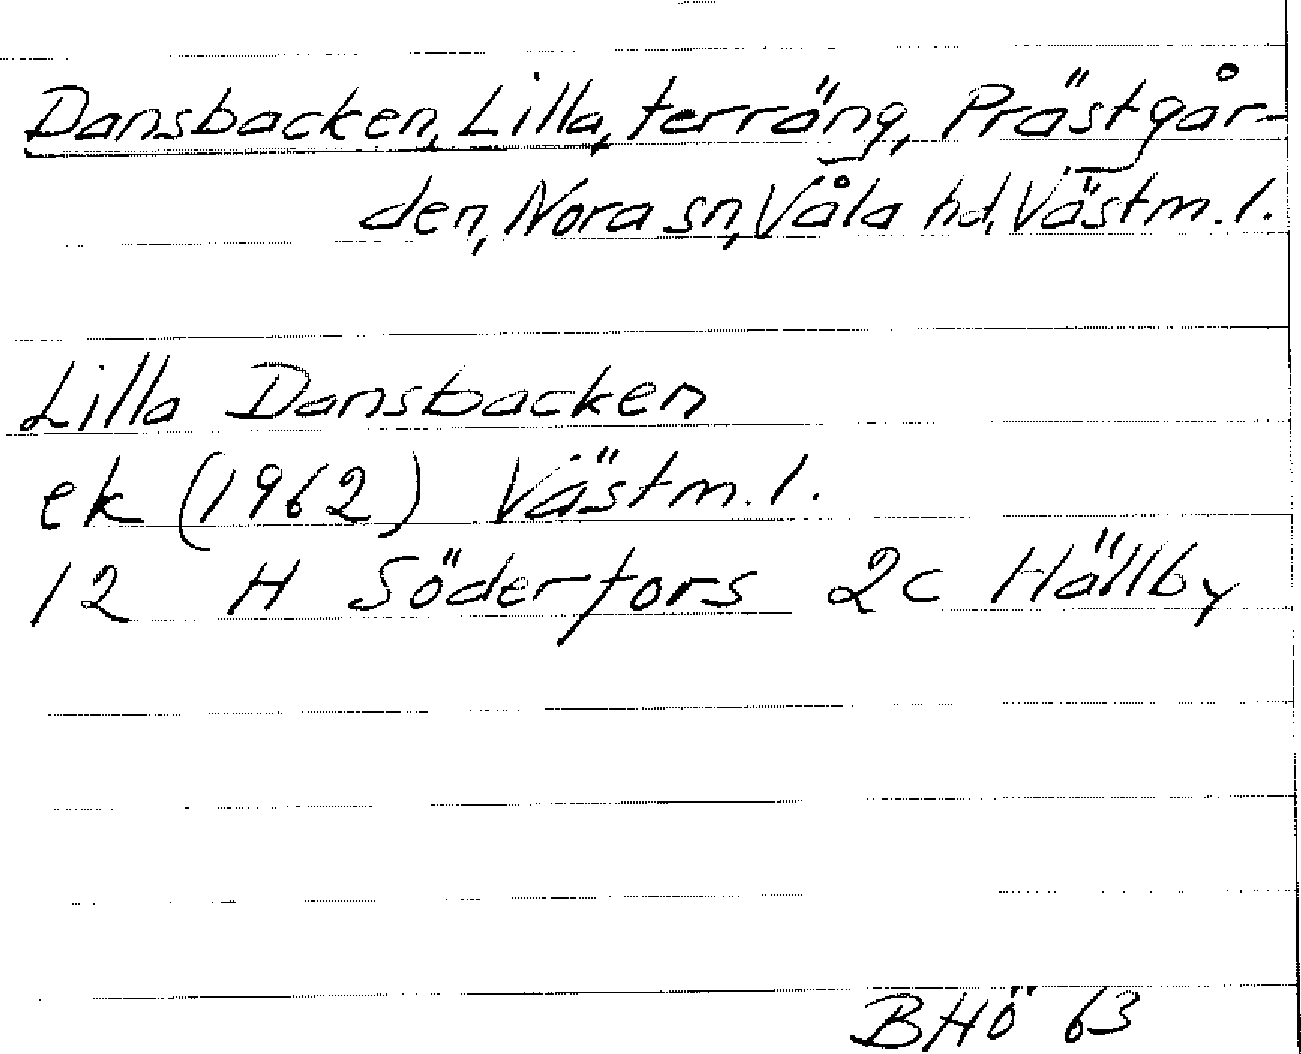 Dansbacken, Lilla, terräng, Prästgår-
den, Nora sn, Våla hd, Västm. l.
Lilla Dansbacken
ek (1962) Västm. l.
12 H Söderfors 2c Hällby
BHö 63